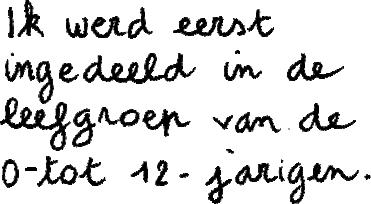 Ik werd eerst
ingedeeld in de
leefgroep van de
0-tot 12-jarigen.